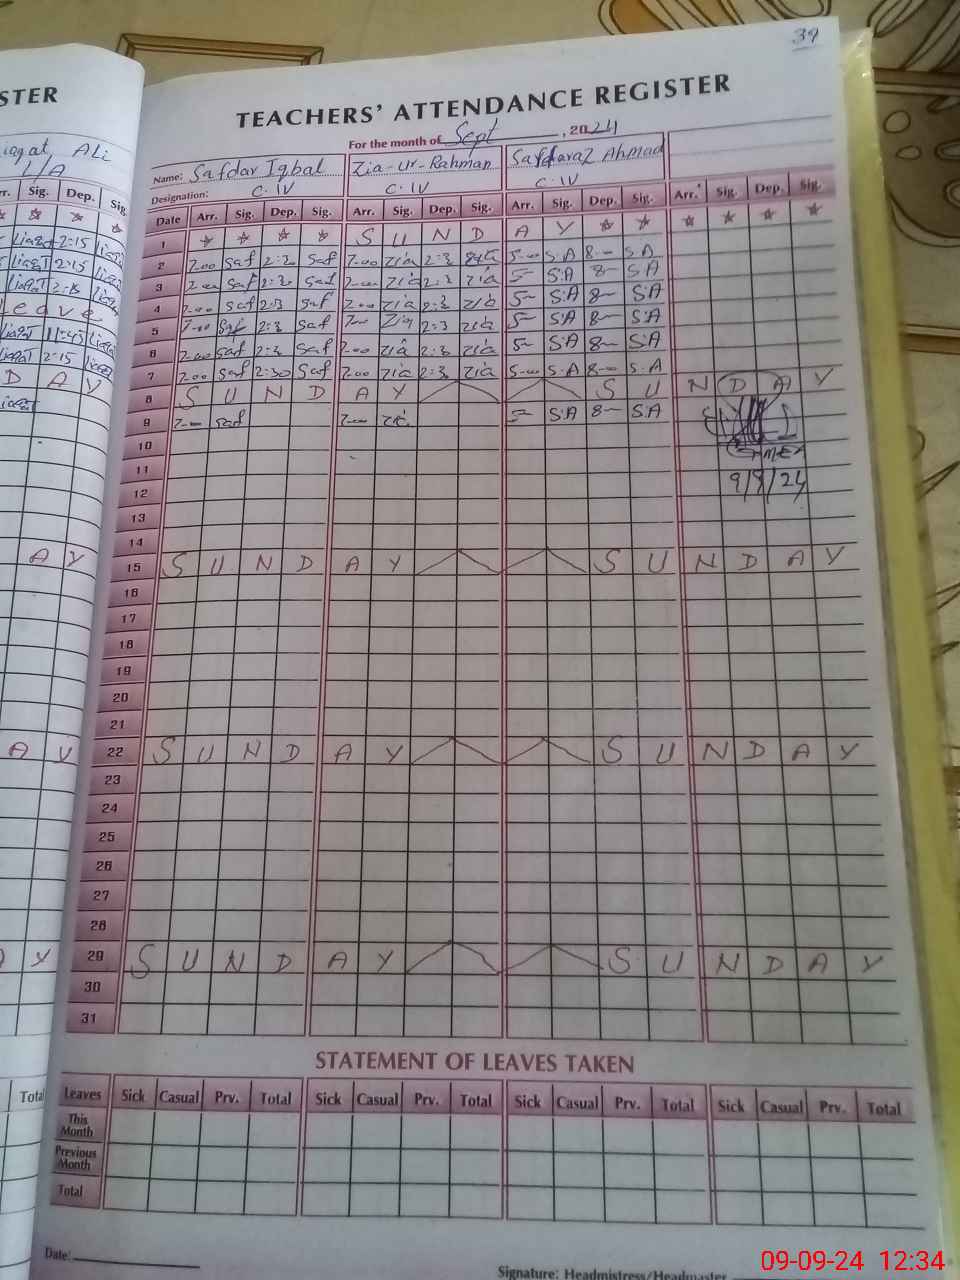 39
STER
TEACHERS' ATTENDANCE REGISTER
For the month of Sept, 2024
iaqat Ali
L/A
Name: Safdar Iqbal Zia-ur-Rahman Safdaraz Ahmad
Designation: C-IV C-IV C-IV
rr. Sig. Dep. Sig.
Date Arr. Sig. Dep. Sig. Arr. Sig. Dep. Sig. Arr. Sig. Dep. Sig. Arr. Sig. Dep. Sig.
1 S U N D A Y
2 7-00 Saf 2:30 Saf 7-00 Zia 2:3 5-00 S.A 8-00 S.A
3 7-00 Saf 2:30 Saf 7-00 Zia 2:3 Zia 5- S.A 8- S.A
4 7-00 Saf 2:3 Saf 7-00 Zia 2:3 Zia 5- S.A 8- S.A
5 7-00 Saf 2:3 Saf 7-00 Zia 2:3 Zia 5- S.A 8- S.A
6 7-00 Saf 2:3 Saf 7-00 Zia 2:3 Zia 5- S.A 8- S.A
7 7-00 Saf 2:30 Saf 7-00 Zia 2:3 Zia 5-00 S.A 8- S.A
8 S U N D A Y S U N D A Y
9 7-00 Saf 7-00 Zia 5- S.A 8- S.A
10
11
9/9/24
12
13
14
15 S U N D A Y S U N D A Y
16
17
18
19
20
21
22 S U N D A Y S U N D A Y
23
24
25
26
27
28
29 S U N D A Y S U N D A Y
30
31
STATEMENT OF LEAVES TAKEN
Total
Leaves Sick Casual Prv. Total Sick Casual Prv. Total Sick Casual Prv. Total Sick Casual Prv. Total
This Month
Previous Month
Total
Date:
Signature: Headmistress/Headmaster
09-09-24 12:34